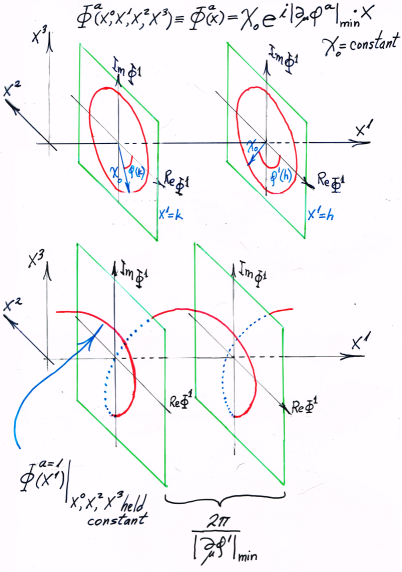 Φᵃ(x⁰,x¹,x²,x³) ≡ Φᵃ(x) = χ₀ e^{i|∂_μ φᵃ|_min · x}
χ₀ = constant
x³
Im Φ¹
Im Φ¹
x²
x¹
χ₀
φ¹(k)
χ₀
φ¹(h)
Re Φ¹
Re Φ¹
x¹=k
x¹=h
x³
Im Φ¹
Im Φ¹
x²
x¹
Re Φ¹
Re Φ¹
Φᵃ⁼¹(x¹)|x⁰,x²,x³ held
constant
2π
|∂_μ φ¹|_min